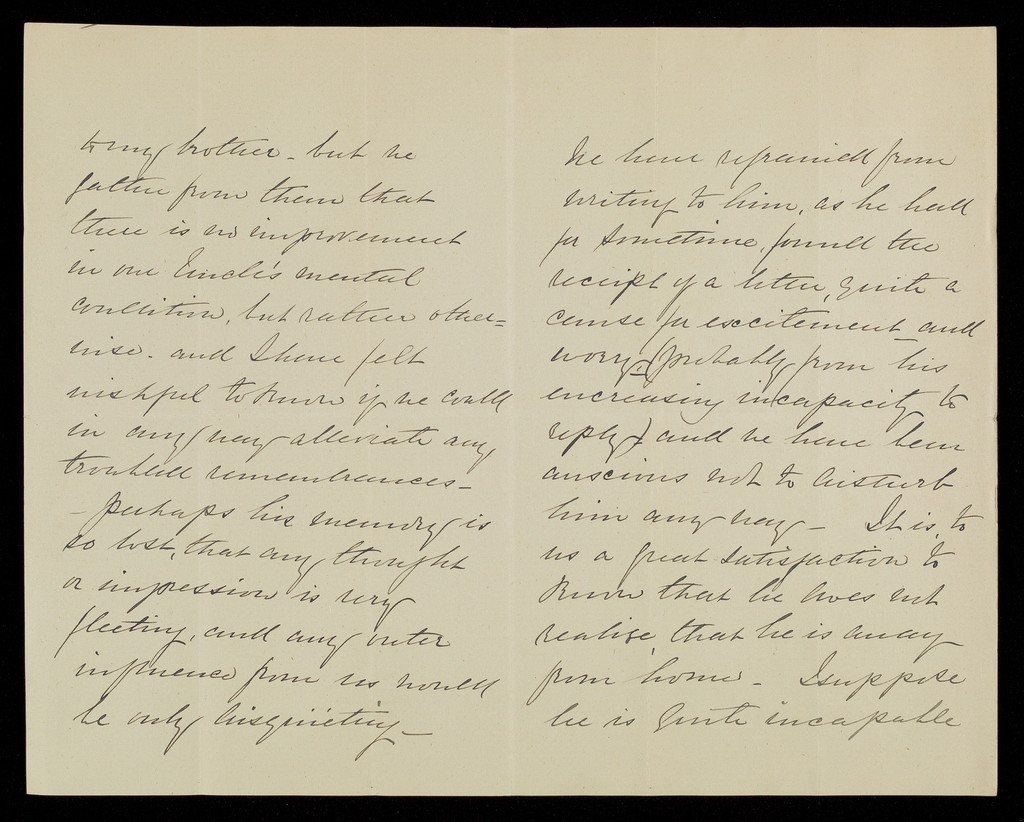 to my brother - but we
gather from them that
there is no improvement
in our Uncle's mental
condition, but rather other=
wise - and I have felt
wishful to know if we could
in any way alleviate any
troubled remembrances -
- perhaps his memory is
so lost, that any thought
or impression is very
fleeting, and any outer
influence from us would
be only disquieting -
We have refrained from
writing to him, as he had
for sometime, found the
receipt of a letter, quite a
cause for excitement and
worry, (probably from his
encreasing incapacity to
reply) and we have been
anxious not to disturb
him any way - It is, to
us a great satisfaction to
know that he does not
realise, that he is away
from home - I suppose
he is quite incapable